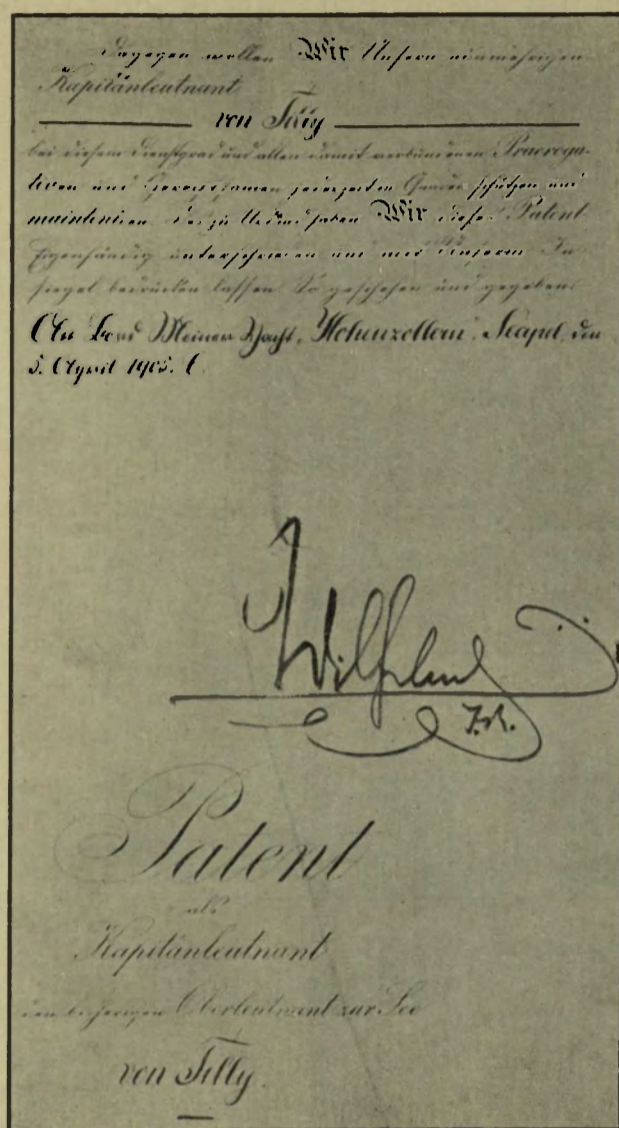 Dagegen wollen Wir Unsern nunmehrigen
Kapitänleutnant
von Tilly
bei diesem Dienstgrad und allen damit verbundenen Praeroga-
tiven und Gerechtsamen jederzeit in Gnaden schützen und
mainteniren. Deß zu Urkund haben Wir dieses Patent
Eigenhändig unterschrieben und mit Unserm In-
siegel bedrucken lassen. So geschehen und gegeben
An Bord Meiner Yacht „Hohenzollern“, Neapel, den
5. April 1905.
Wilhelm
I.R.
Patent
als
Kapitänleutnant
den bisherigen Oberleutnant zur See
von Tilly.